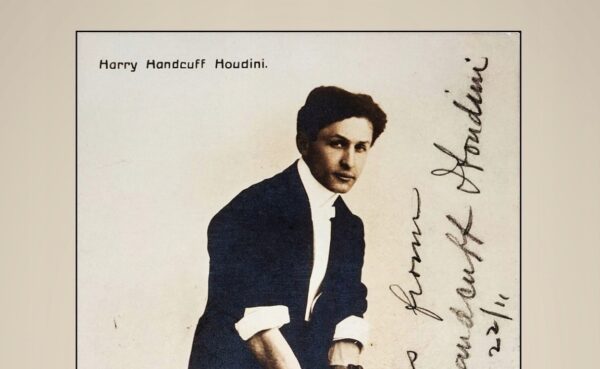 Harry Handcuff Houdini.
s from
andcuff Houdini
22/11